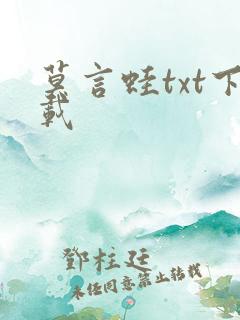 莫言蛙txt下
载
鄧柱廷
未经同意禁止转载